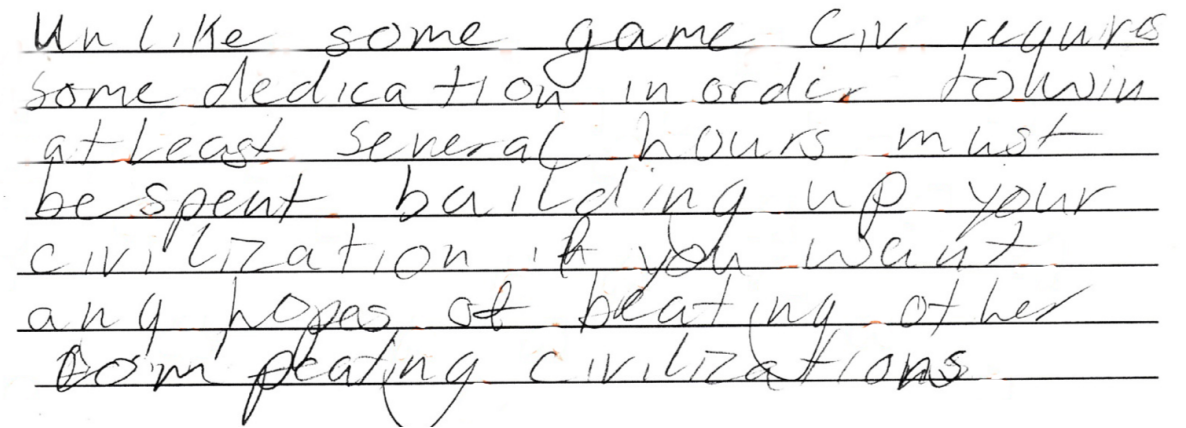 Unlike some game Civ requires
some dedication in order to win
at least several hours must
be spent building up your
civilization if you want
any hopes of beating other
compeating civilizations